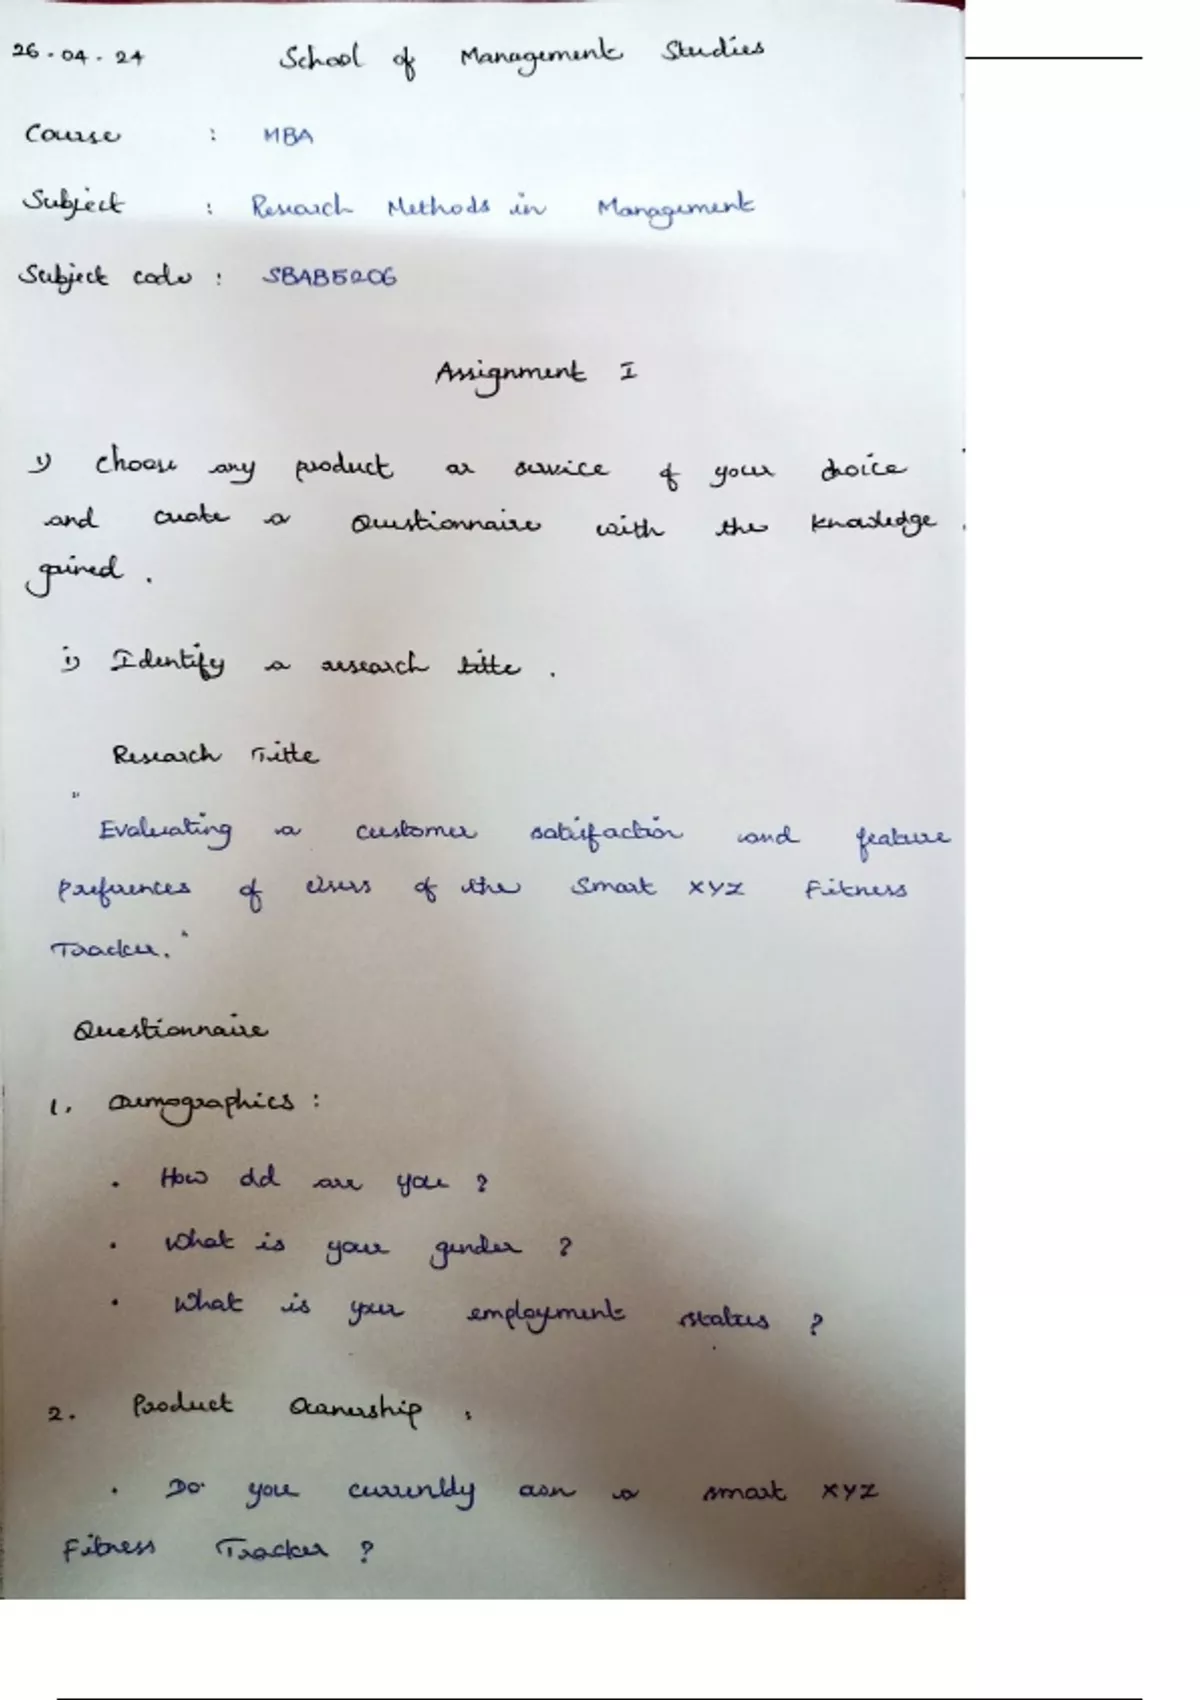 26.04.24 School of Management Studies
Course : MBA
Subject : Research Methods in Management
Subject code : SBAB5206
Assignment I
1) Choose any product or service of your choice
and create a Questionnaire with the knowledge
gained.
i) Identify a research title.
Research Title
"Evaluating a customer satisfaction and feature
preferences of users of the Smart XYZ Fitness
Tracker."
Questionnaire
1. Demographics :
• How old are you ?
• What is your gender ?
• What is your employment status ?
2. Product Ownership :
• Do you currently own a smart XYZ
Fitness Tracker ?